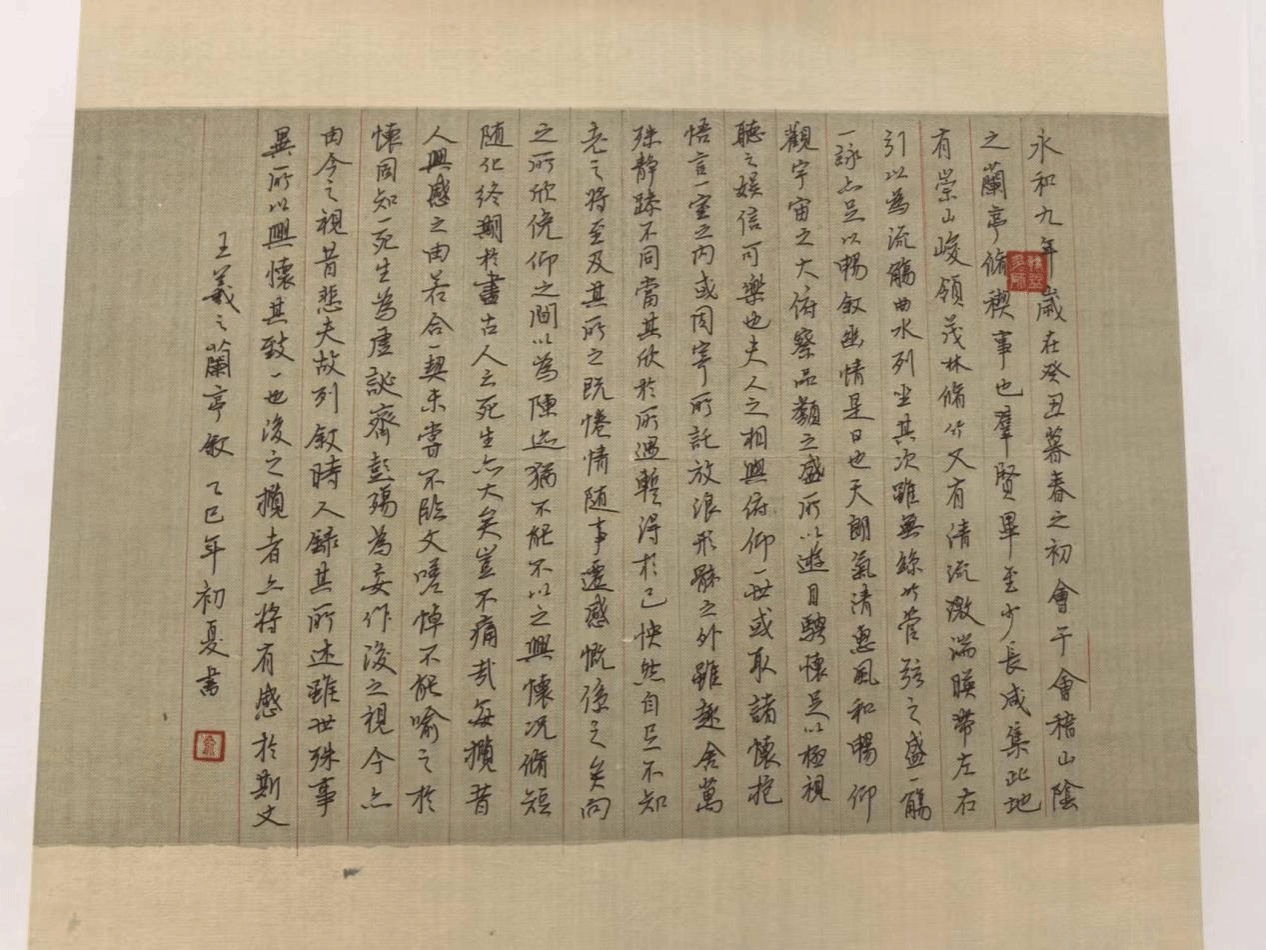 永和九年歲在癸丑暮春之初會于會稽山陰
之蘭亭脩稧事也羣賢畢至少長咸集此地
有崇山峻領茂林脩竹又有清流激湍暎帶左右
引以為流觴曲水列坐其次雖無絲竹管弦之盛一觴
一詠亦足以暢敘幽情是日也天朗氣清惠風和暢仰
觀宇宙之大俯察品類之盛所以遊目騁懷足以極視
聽之娛信可樂也夫人之相與俯仰一世或取諸懷抱
悟言一室之內或因寄所託放浪形骸之外雖趣舍萬
殊靜躁不同當其欣於所遇暫得於己怏然自足不知
老之將至及其所之既惓情隨事遷感慨係之矣向
之所欣俛仰之間以為陳迹猶不能不以之興懷況脩短
隨化終期於盡古人云死生亦大矣豈不痛哉每攬昔
人興感之由若合一契未嘗不臨文嗟悼不能喻之於
懷固知一死生為虛誕齊彭殤為妄作後之視今亦
由今之視昔悲夫故列敘時人錄其所述雖世殊事
異所以興懷其致一也後之攬者亦將有感於斯文
王羲之蘭亭敘 乙巳年初夏書